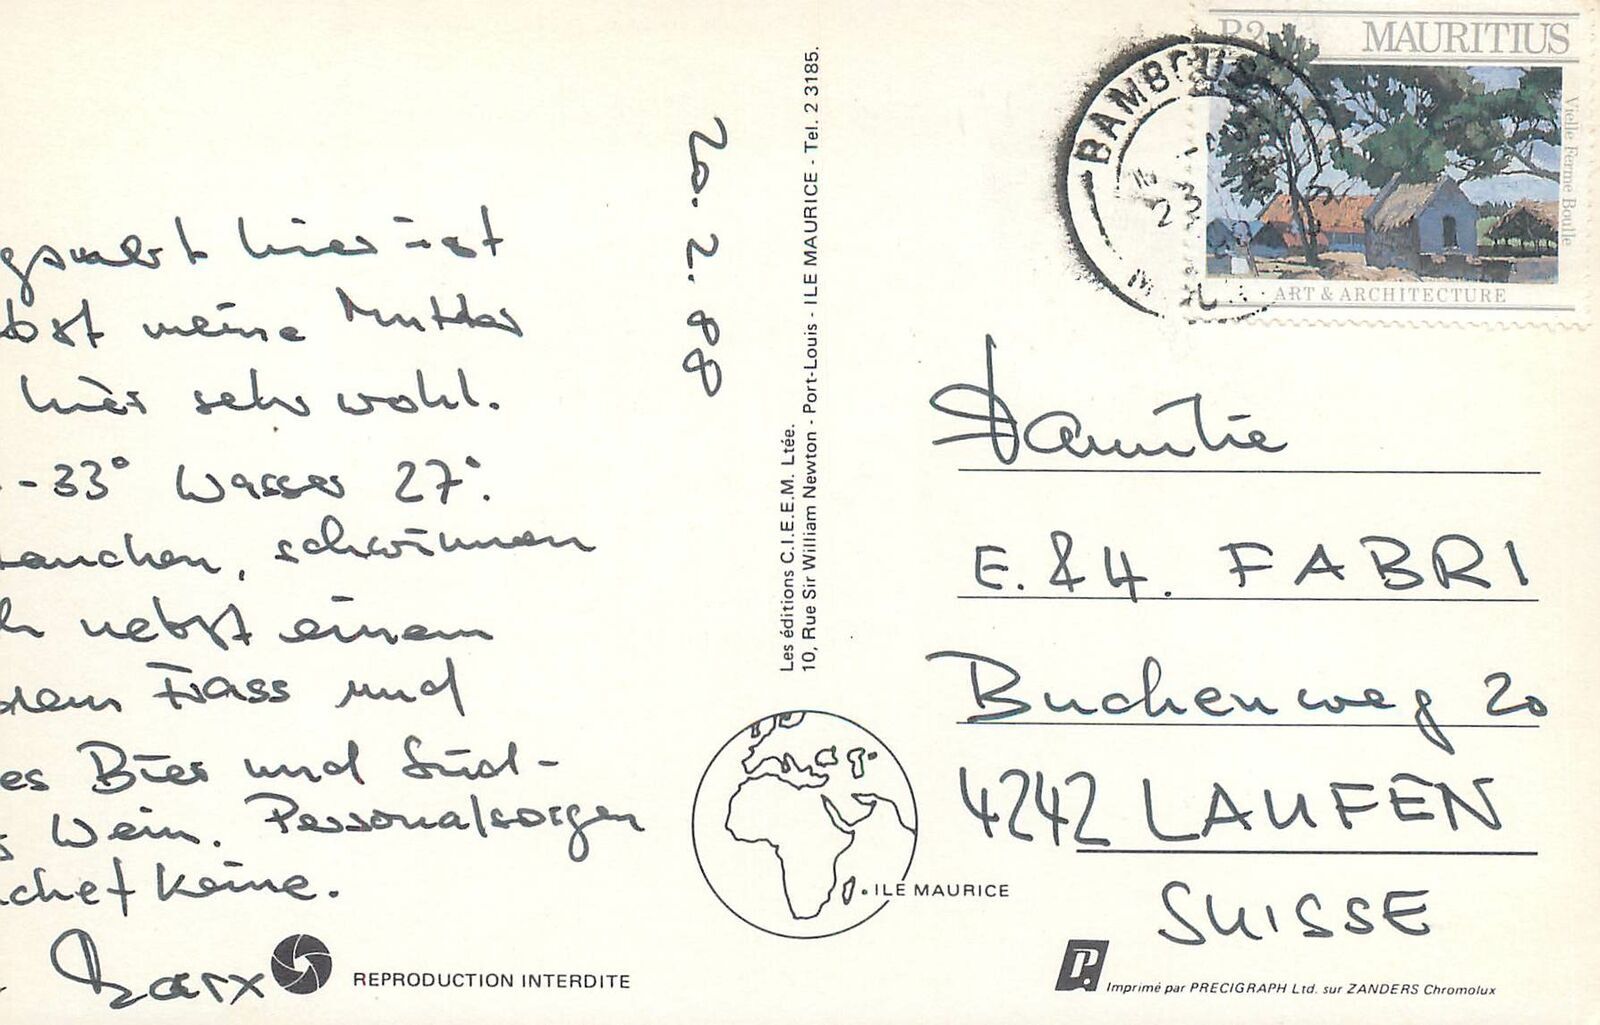 20.2.88
hier ist
meine Mutter
hier sehr wohl.
-33° Wasser 27°.
schwimmen
nebst einem
Frass und
es Bier und Süd-
Wein. Personalsorgen
chef keine.
Marx
REPRODUCTION INTERDITE
Les éditions C.I.E.E.M. Ltée.
10, Rue Sir William Newton - Port-Louis - ILE MAURICE - Tel. 2 3185.
ILE MAURICE
R2
MAURITIUS
Vielle Ferme Boulle
ART & ARCHITECTURE
BAMBOUS
23
Familie
E. & H. FABRI
Buchenweg 20
4242 LAUFEN
SUISSE
P.
Imprimé par PRECIGRAPH Ltd. sur ZANDERS Chromolux